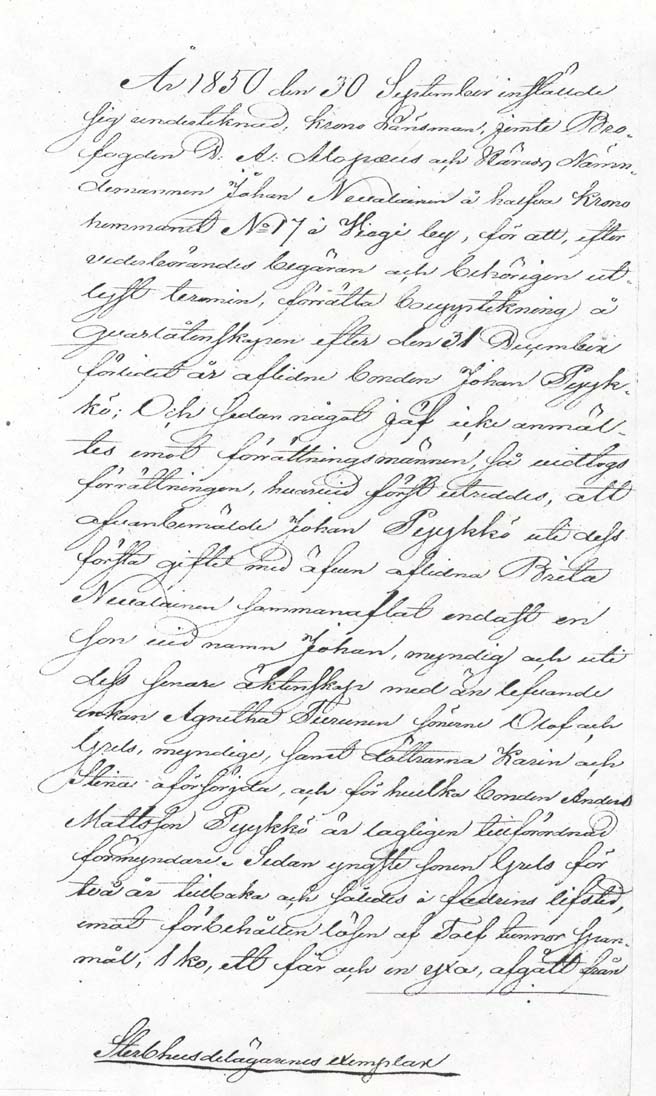 År 1850 den 30 September inställde
sig undertecknad, krono Länsman, jemte Bro-
fogden D. A. Alopæus och Härads Nämn-
demannen Johan Neulainen å halfva krono
hemmanet No 17 i Wiogi by, för att, efter
vederbörandes begäran och behörigen ut-
lyst termin, förrätta bouppteckning å
qvarlåtenskapen efter den 31 December
förledet år aflidne bonden Johan Pyyk-
kö; Och sedan något jäf icke anmäl-
tes emot förrättningsmännen, så vidtogs
förrättningen, hvarvid först utreddes, att
ofvanbemälde Johan Pyykkö uti dess
första gifte med äfven aflidna Brita
Neulainen sammanaflat endast en
son vid namn Johan, myndig och uti
dess senare äktenskap med än lefvande
enkan Agnetha Piirunen sönerne Olof och
Grels, myndige, samt döttrarna Karin och
Stina oförsörjda, och för hvilka bonden Anders
Mattsson Pyykkö är lagligen tillförordnad
förmyndare. Sedan yngste sonen Grels för
två år tillbaka och således i fadrens lifstid,
emot förbehållen lösen af Tolf tunnor Span-
mål, 1 ko, ett får och en yxa, afgått från
Sterbhusdelägarenes exemplar